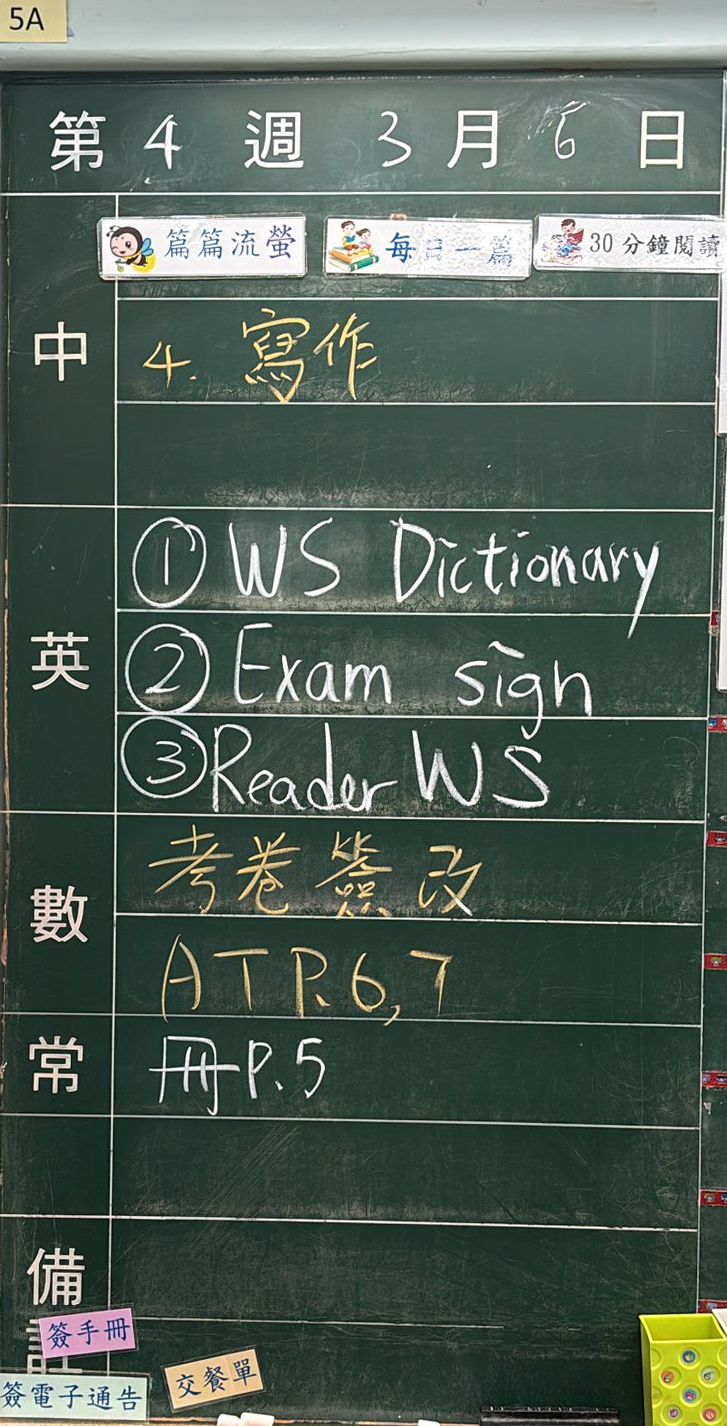 5A
第 4 週 3 月 6 日
篇篇流螢 每日一篇 30 分鐘閱讀
中
4. 寫作
英
① WS Dictionary
② Exam sign
③ Reader WS
數
考卷簽改
AT P.6,7
常
冊 P.5
備註
簽手冊
簽電子通告
交餐單